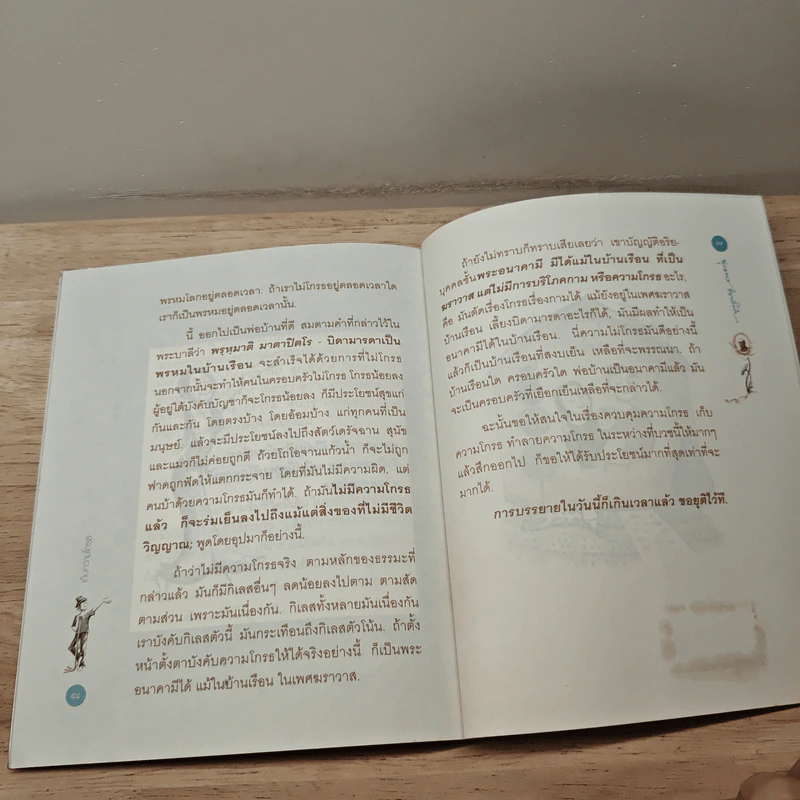 พรหมโลกอยู่ตลอดเวลา. ถ้าเราไม่โกรธอยู่ตลอดเวลาใด
เราก็เป็นพรหมอยู่ตลอดเวลานั้น.
นี้ ออกไปเป็นพ่อบ้านที่ดี สมตามคำที่กล่าวไว้ใน
พระบาลีว่า พฺรหฺมาติ มาตาปิตโร - บิดามารดาเป็น
พรหมในบ้านเรือน จะสำเร็จได้ด้วยการที่ไม่โกรธ
นอกจากนั้นจะทำให้คนในครอบครัวไม่โกรธ โกรธน้อยลง
ผู้อยู่ใต้บังคับบัญชาก็จะโกรธน้อยลง ก็มีประโยชน์สุขแก่
กันและกัน โดยตรงบ้าง โดยอ้อมบ้าง แก่ทุกคนที่เป็น
มนุษย์. แล้วจะมีประโยชน์ลงไปถึงสัตว์เดรัจฉาน สุนัข
และแมวก็ไม่ค่อยถูกตี ถ้วยโถโอจานแก้วน้ำ ก็จะไม่ถูก
ฟาดถูกฟัดให้แตกกระจาย โดยที่มันไม่มีความผิด, แต่
คนบ้าด้วยความโกรธมันก็ทำได้. ถ้ามันไม่มีความโกรธ
แล้ว ก็จะร่มเย็นลงไปถึงแม้แต่สิ่งของที่ไม่มีชีวิต
วิญญาณ; พูดโดยอุปมาก็อย่างนี้.
ถ้าว่าไม่มีความโกรธจริง ตามหลักของธรรมะที่
กล่าวแล้ว มันก็มีกิเลสอื่นๆ ลดน้อยลงไปตาม ตามสัด
ตามส่วน เพราะมันเนื่องกัน. กิเลสทั้งหลายมันเนื่องกัน
เราบังคับกิเลสตัวนี้ มันกระเทือนถึงกิเลสตัวโน้น. ถ้าตั้ง
หน้าตั้งตาบังคับความโกรธให้ได้จริงอย่างนี้ ก็เป็นพระ
อนาคามีได้ แม้ในบ้านเรือน ในเพศฆราวาส.
กับความโกรธ
๔๘
ถ้ายังไม่ทราบก็ทราบเสียเลยว่า เขาบัญญัติอริย-
บุคคลชั้นพระอนาคามี มีได้แม้ในบ้านเรือน ที่เป็น
ฆราวาส แต่ไม่มีการบริโภคกาม หรือความโกรธ อะไร,
คือ มันตัดเรื่องโกรธเรื่องกามได้ แม้ยังอยู่ในเพศฆราวาส
บ้านเรือน เลี้ยงบิดามารดาอะไรก็ได้, มันมีผลทำให้เป็น
อนาคามีได้ในบ้านเรือน. นี่ความไม่โกรธมันดีอย่างนี้
แล้วก็เป็นบ้านเรือนที่สงบเย็น เหลือที่จะพรรณนา. ถ้า
บ้านเรือนใด ครอบครัวใด พ่อบ้านเป็นอนาคามีแล้ว มัน
จะเป็นครอบครัวที่เยือกเย็นเหลือที่จะกล่าวได้.
ฉะนั้นขอให้สนใจในเรื่องควบคุมความโกรธ เก็บ
ความโกรธ ทำลายความโกรธ ในระหว่างที่บวชนี้ให้มากๆ
แล้วสึกออกไป ก็ขอให้ได้รับประโยชน์มากที่สุดเท่าที่จะ
มากได้.
การบรรยายในวันนี้ก็เกินเวลาแล้ว ขอยุติไว้ที.